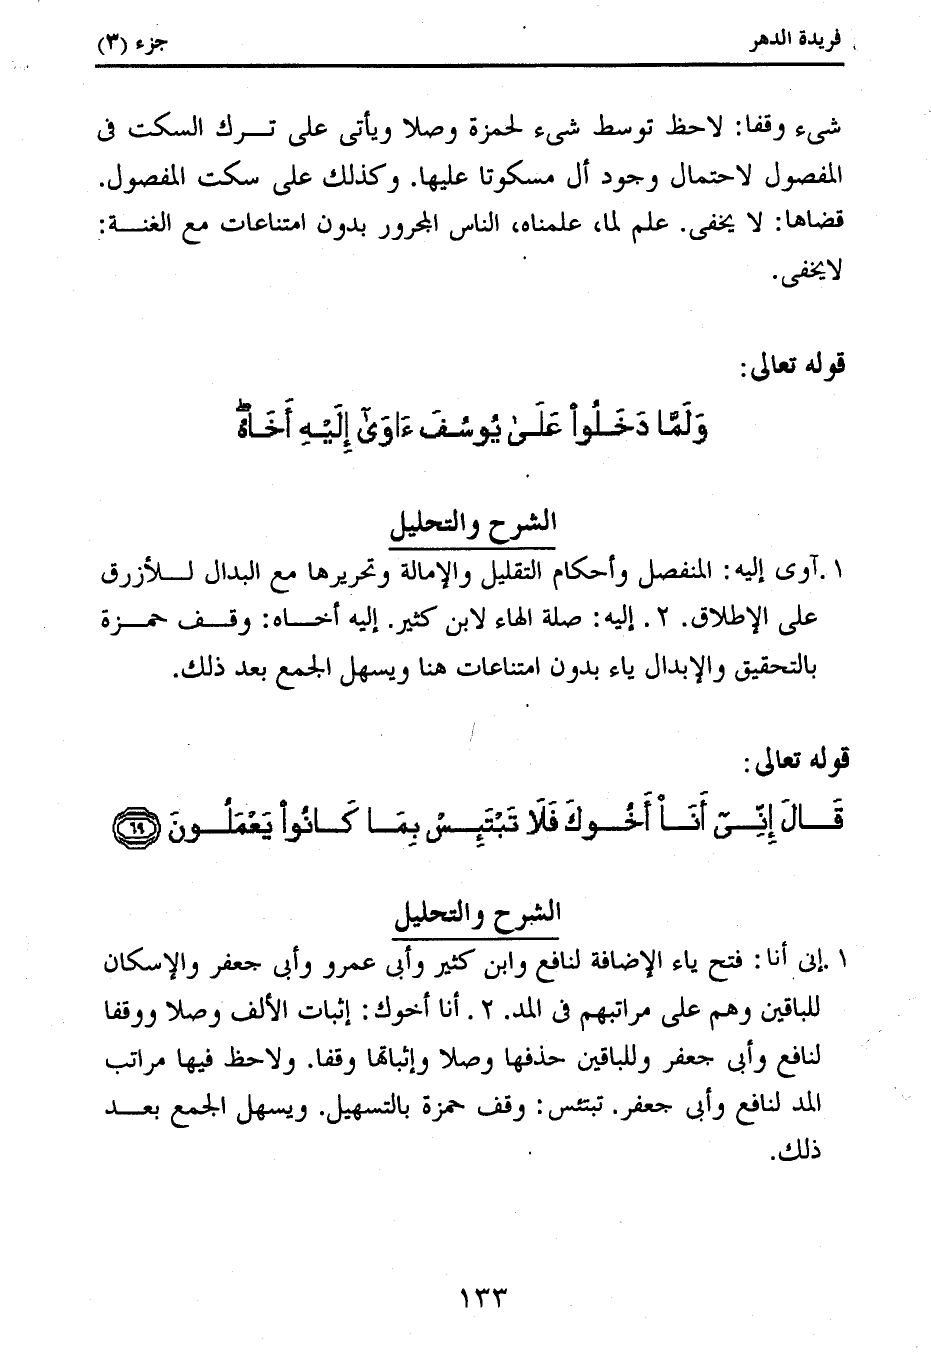 فريدة الدهر
جزء (٣)
شىء وقفا: لاحظ توسط شىء لحمزة وصلا ويأتى على ترك السكت فى
المفصول لاحتمال وجود أل مسكوتا عليها. وكذلك على سكت المفصول.
قضاها: لا يخفى. علم لما، علمناه، الناس المجرور بدون امتناعات مع الغنة:
لايخفى.
قوله تعالى:
وَلَمَّا دَخَلُوا۟ عَلَىٰ يُوسُفَ ءَاوَىٰٓ إِلَيْهِ أَخَاهُ ۖ
الشرح والتحليل
١. آوى إليه: المنفصل وأحكام التقليل والإمالة وتحريرها مع البدال للأزرق
على الإطلاق. ٢. إليه: صلة الهاء لابن كثير. إليه أخاه: وقف حمزة
بالتحقيق والإبدال ياء بدون امتناعات هنا ويسهل الجمع بعد ذلك.
قوله تعالى:
قَالَ إِنِّىٓ أَنَا۠ أَخُوكَ فَلَا تَبْتَئِسْ بِمَا كَانُوا۟ يَعْمَلُونَ ٦٩
الشرح والتحليل
١. إنى أنا: فتح ياء الإضافة لنافع وابن كثير وأبى عمرو وأبى جعفر والإسكان
للباقين وهم على مراتبهم فى المد. ٢. أنا أخوك: إثبات الألف وصلا ووقفا
لنافع وأبى جعفر وللباقين حذفها وصلا وإثباتها وقفا. ولاحظ فيها مراتب
المد لنافع وأبى جعفر. تبتئس: وقف حمزة بالتسهيل. ويسهل الجمع بعد
ذلك.
١٣٣